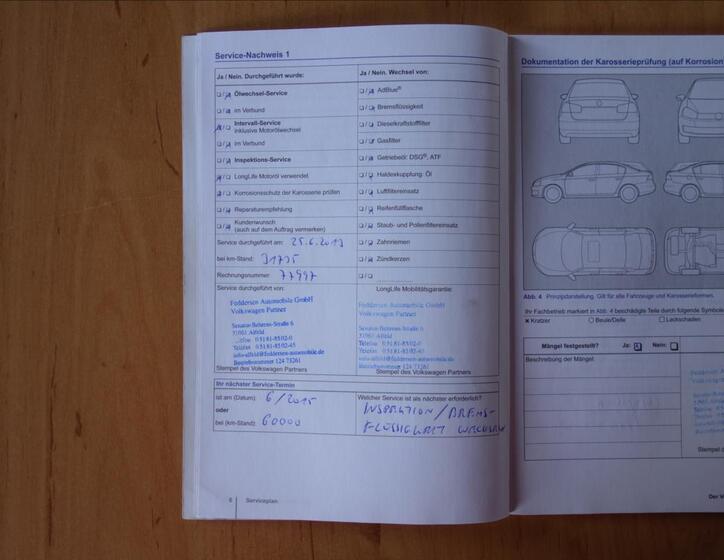 Service-Nachweis 1
Ja / Nein. Durchgeführt wurde:
Ölwechsel-Service
im Verbund
Intervall-Service
inklusive Motorölwechsel
im Verbund
Inspektions-Service
LongLife Motoröl verwendet
Korrosionsschutz der Karosserie prüfen
Reparaturempfehlung
Kundenwunsch
(auch auf dem Auftrag vermerken)
Service durchgeführt am: 25.6.2013
bei km-Stand: 31775
Rechnungsnummer: 77997
Service durchgeführt von:
Feddersen Automobile GmbH
Volkswagen Partner
Senator-Behrens-Straße 6
31061 Alfeld
Telefon 0 51 81-85 02-0
Telefax 0 51 81-85 02-45
info-alfeld@feddersen-automobile.de
Betriebsnummer 124 73261
Stempel des Volkswagen Partners
Ja / Nein. Wechsel von:
AdBlue®
Bremsflüssigkeit
Dieselkraftstofffilter
Gasfilter
Getriebeöl: DSG®, ATF
Haldexkupplung: Öl
Luftfiltereinsatz
Reifenfüllflasche
Staub- und Pollenfiltereinsatz
Zahnriemen
Zündkerzen
LongLife Mobilitätsgarantie:
Feddersen Automobile GmbH
Volkswagen Partner
Senator-Behrens-Straße 6
31061 Alfeld
Telefon 0 51 81-85 02-0
Telefax 0 51 81-85 02-45
info-alfeld@feddersen-automobile.de
Betriebsnummer 124 73261
Stempel des Volkswagen Partners
Ihr nächster Service-Termin
ist am (Datum): 6/2015
oder
bei (km-Stand): 60000
Welcher Service ist als nächster erforderlich?
INSPEKTION/BREMS-
FLÜSSIGKEIT WECHSELN
6 Serviceplan
Dokumentation der Karosserieprüfung (auf Korrosion
Abb. 4 Prinzipdarstellung. Gilt für alle Fahrzeuge und Karosserieformen.
Ihr Fachbetrieb markiert in Abb. 4 beschädigte Teile durch folgende Symbole
Kratzer Beule/Delle Lackschaden
Mängel festgestellt? Ja: Nein:
Beschreibung der Mängel:
Stempel